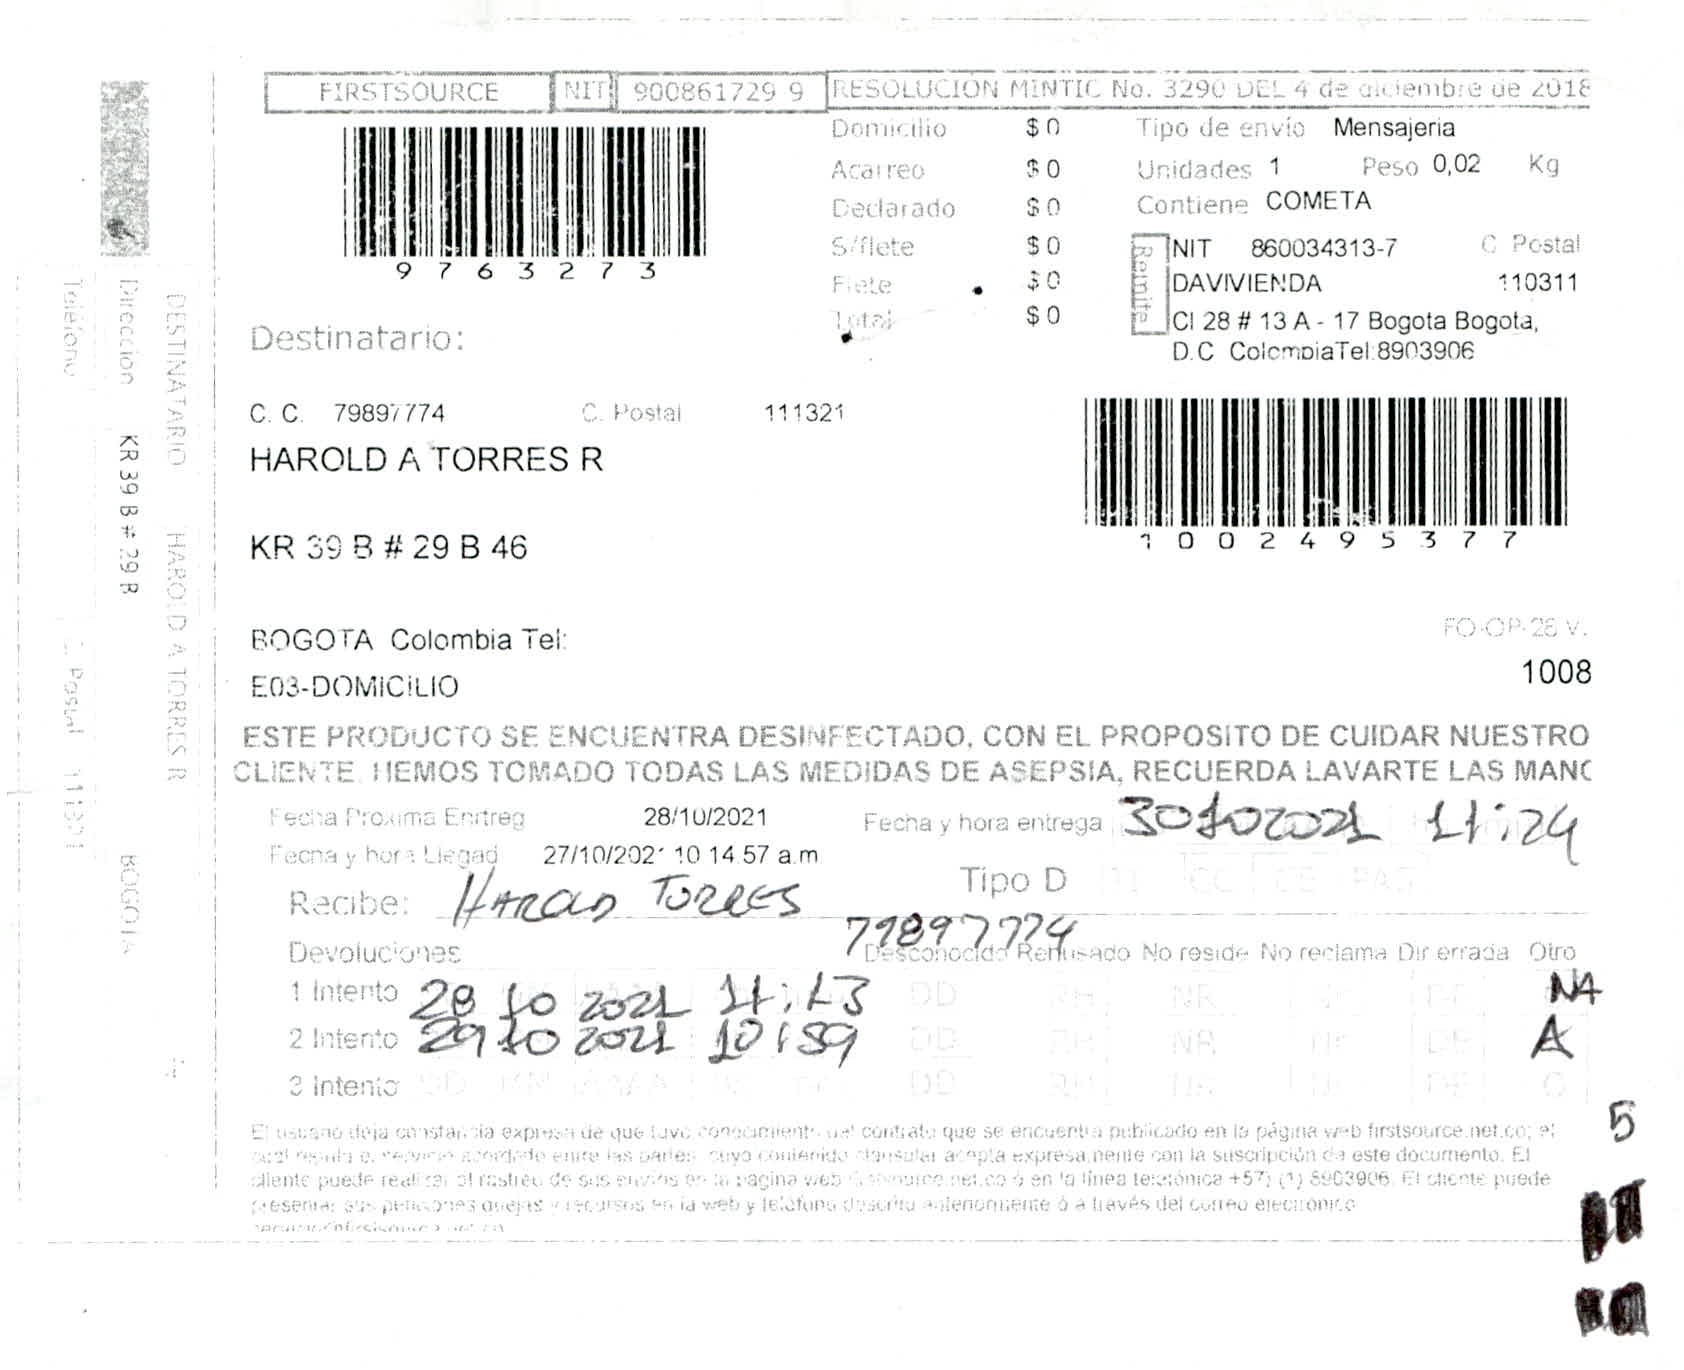 FIRSTSOURCE NIT 900861729 9 RESOLUCION MINTIC No. 3290 DEL 4 de diciembre de 2018
9763273
Domicilio $ 0
Acarreo $ 0
Declarado $ 0
S/flete $ 0
Flete $ 0
Total $ 0
Tipo de envío Mensajeria
Unidades 1 Peso 0,02 Kg
Contiene COMETA
Remite
NIT 860034313-7 C Postal
DAVIVIENDA 110311
Cl 28 # 13 A - 17 Bogota Bogota,
D.C Colombia Tel:8903906
Destinatario:
C. C. 79897774 C. Postal 111321
HAROLD A TORRES R
KR 39 B # 29 B 46
1002495377
BOGOTA Colombia Tel:
E03-DOMICILIO
FO-OP-28 V.
1008
ESTE PRODUCTO SE ENCUENTRA DESINFECTADO, CON EL PROPOSITO DE CUIDAR NUESTRO
CLIENTE. HEMOS TOMADO TODAS LAS MEDIDAS DE ASEPSIA, RECUERDA LAVARTE LAS MANO
Fecha Proxima Entreg 28/10/2021
Fecha y hora entrega 30 10 2021 11:24
Fecha y hora Llegad 27/10/2021 10 14:57 a.m
Tipo D TI CC CE PAS
Recibe: HAROLD TORRES
79897774
Devoluciones Desconocido Rehusado No reside No reclama Dir errada Otro
1 Intento 28 10 2021 11:13 DD RH NR DE NA
2 Intento 29 10 2021 10:59 DD RH NR NR DE A
3 Intento DD MM AAAA DD RH NR DE O
El usuario deja constancia expresa de que tuvo conocimiento del contrato que se encuentra publicado en la página web firstsource.net.co; el
cual regula el servicio acordado entre las partes, cuyo contenido clausular acepta expresamente con la suscripción de este documento. El
cliente puede realizar el rastreo de sus envios en la pagina web firstsource.net.co ó en la línea telefónica +57) (1) 8903906. El cliente puede
presentar sus peticiones quejas y recursos en la web y teléfono descrito anteriormente ó a través del correo electrónico
5
DESTINATARIO HAROLD A TORRES R
Direccion KR 39 B # 29 B BOGOTA
Telefono C. Postal 111321